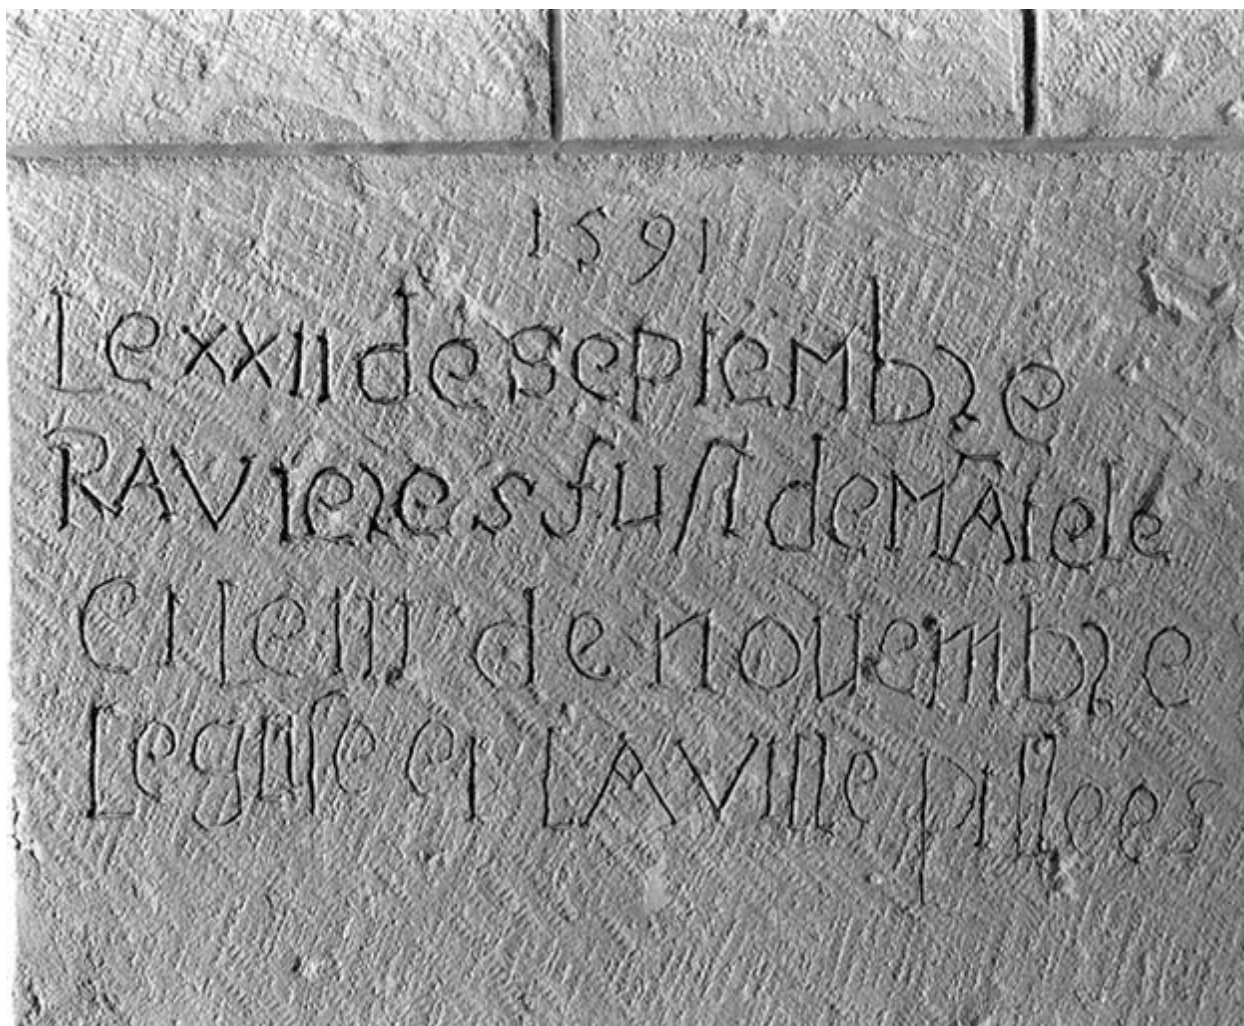 1591
Le xxii de septembre
RAVieres fuſt de MÃtele
et le iij de nouembre
Legliſe et LA Ville pillees